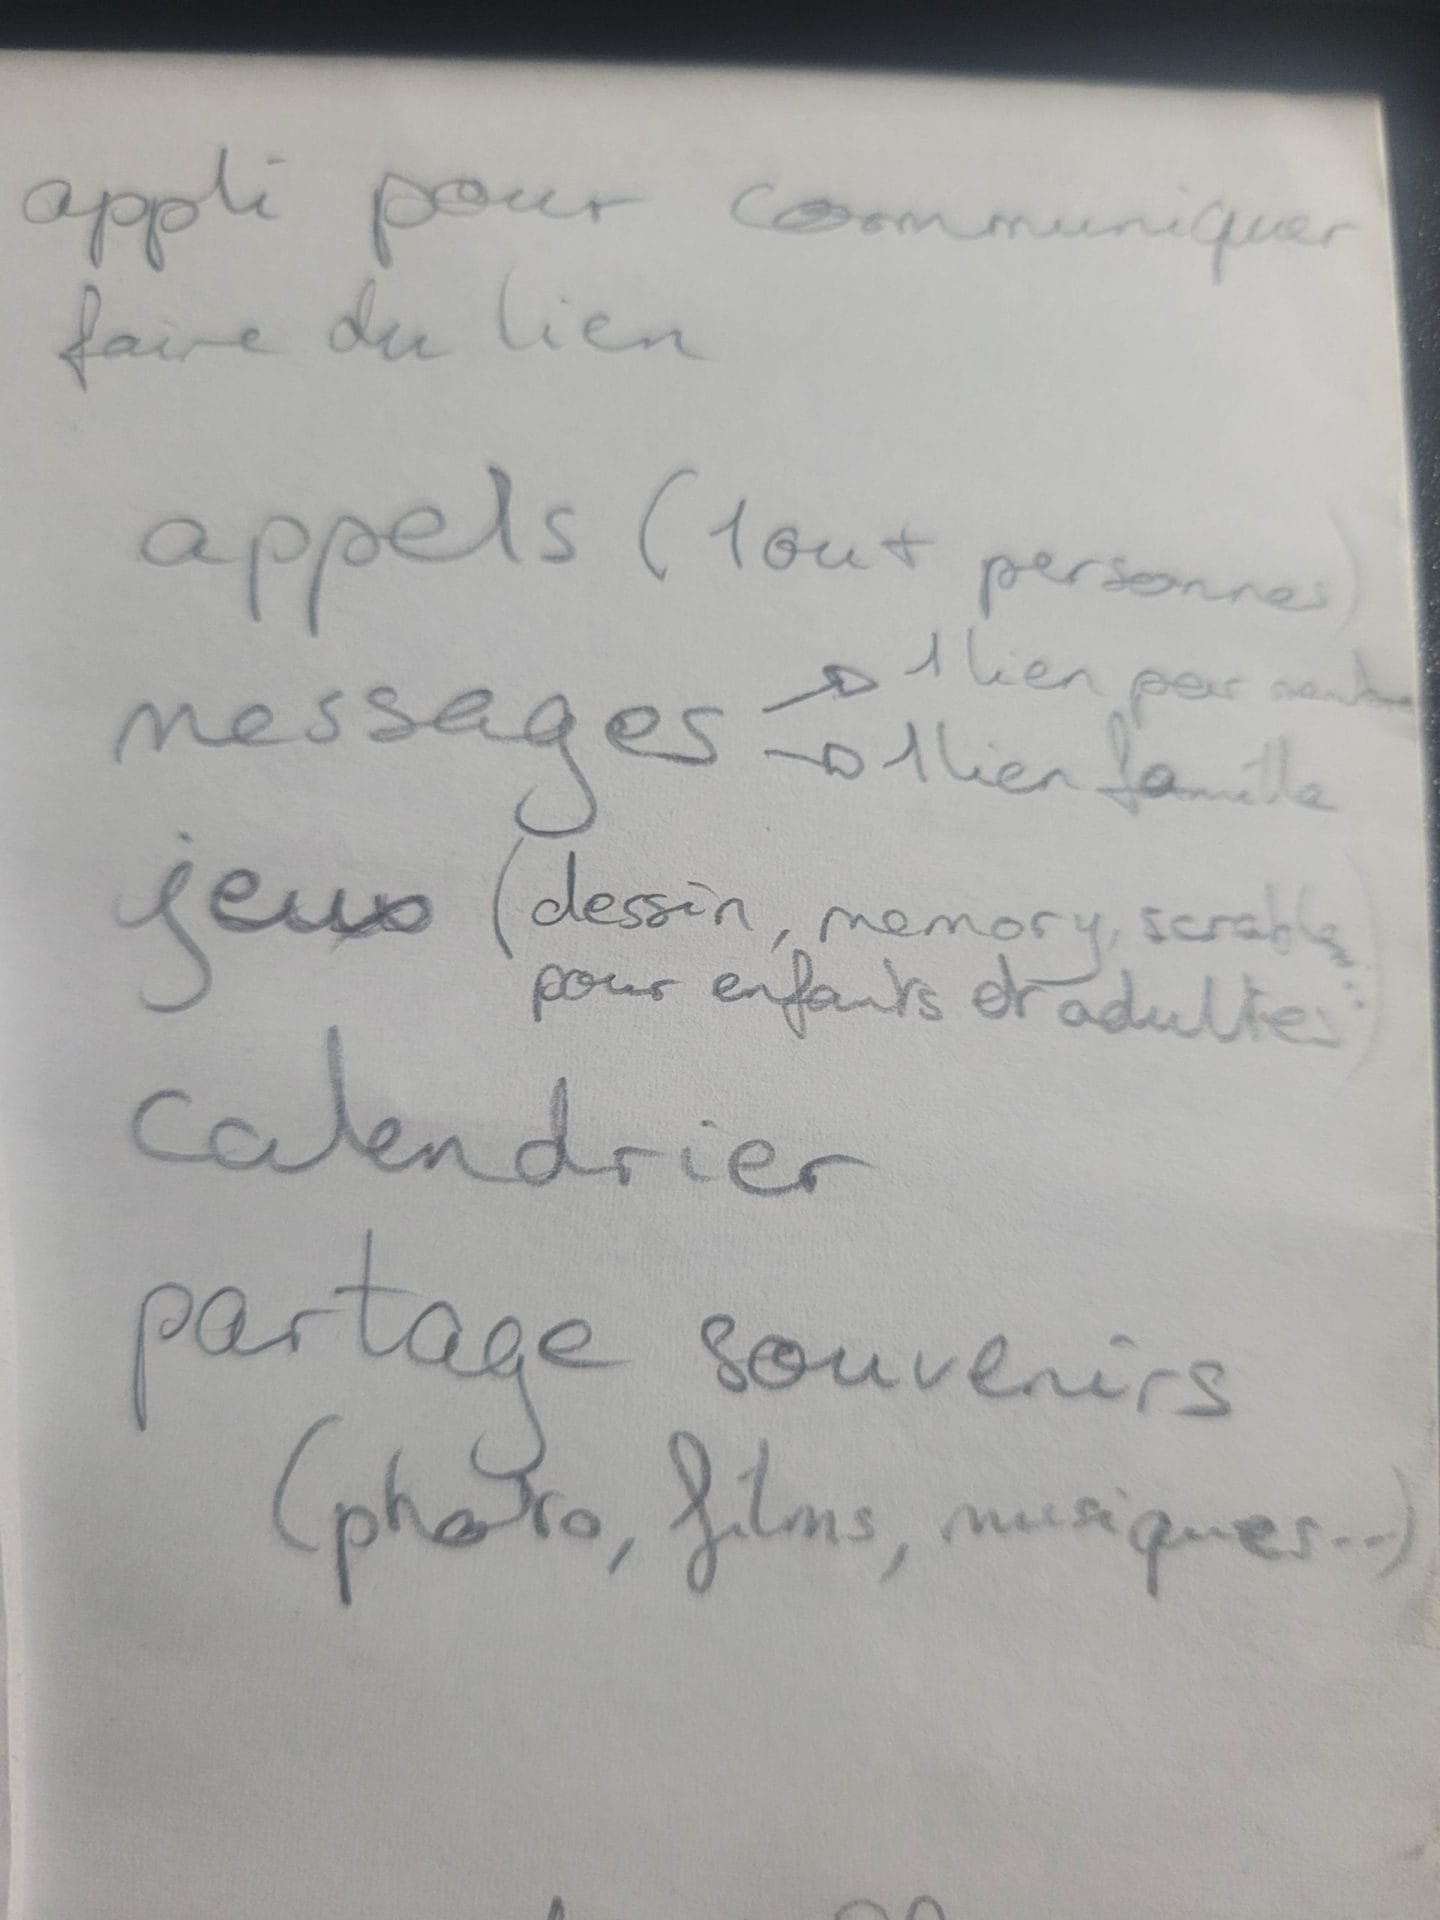 appli pour communiquer
faire du lien
appels (1 ou + personnes)
messages → 1 lien par
→ 1 lien famille
jeux (dessin, memory, scrabble
pour enfants et adultes)
calendrier
partage souvenirs
(photo, films, musiques...)